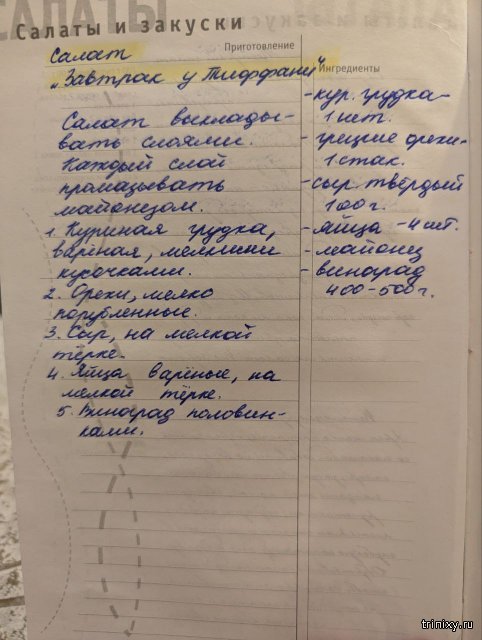 Салаты и закуски
Приготовление
Салат
"Завтрак у Тиффани"
Салат выклады-
вать слоями.
Каждый слой
промазывать
майонезом.
1. Куриная грудка,
варёная, мелкими
кусочками.
2. Орехи, мелко
порубленные.
3. Сыр, на мелкой
тёрке.
4. Яйца варёные, на
мелкой тёрке.
5. Виноград половин-
ками.
Ингредиенты
-кур. грудка-
1 шт.
-грецкие орехи-
1 стак.
-сыр твёрдый
100 г.
-яйца -4 шт.
-майонез
-виноград
400-500 г.
trinixy.ru